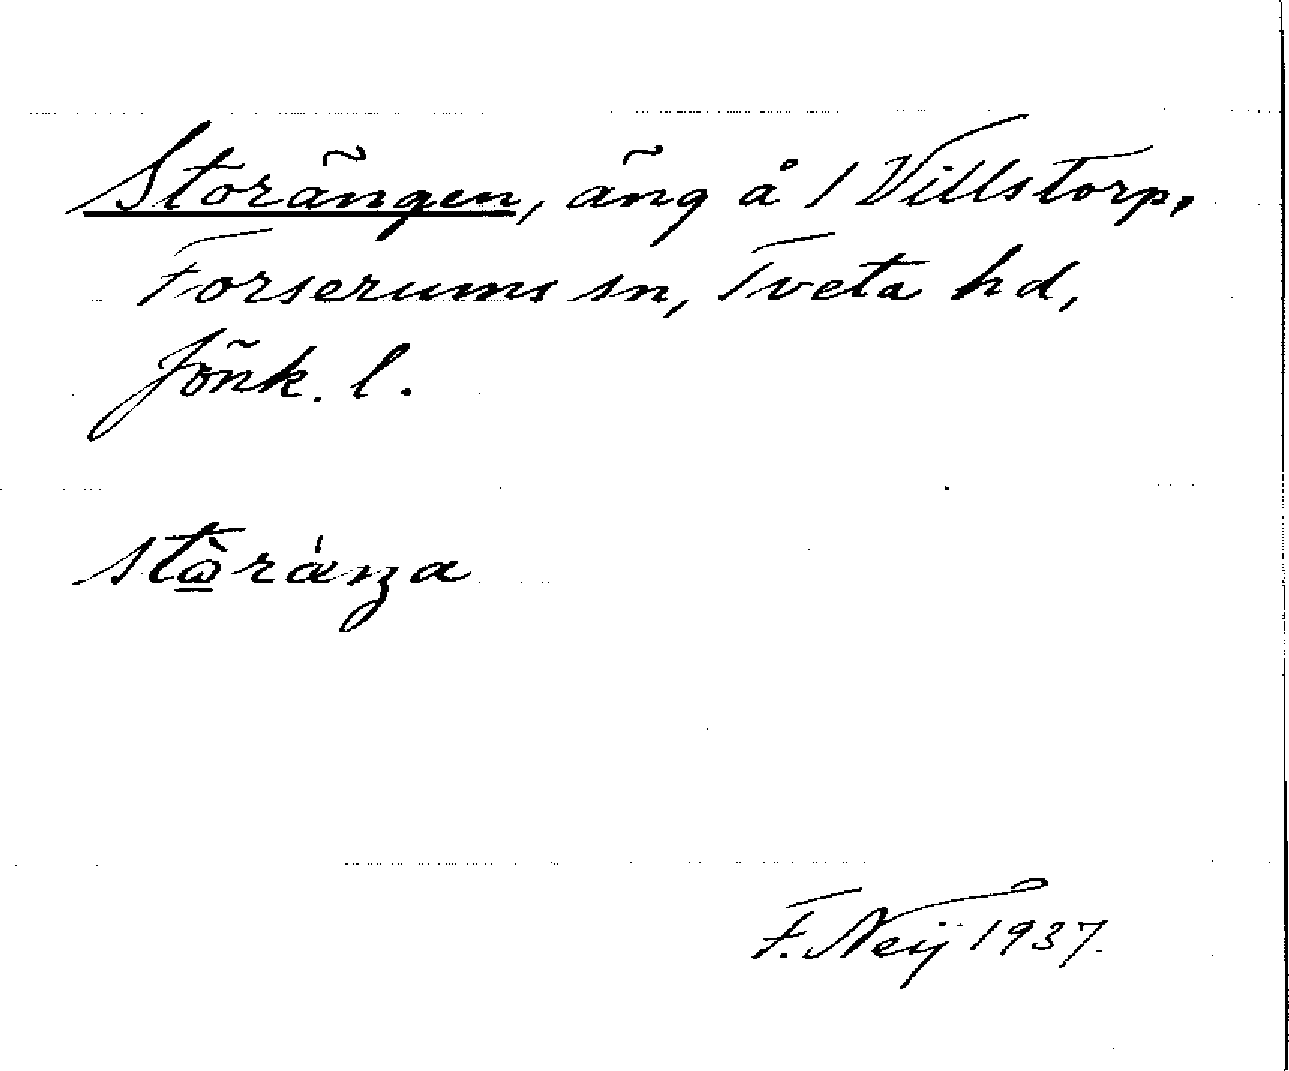 Storängen, äng å 1 Villstorp,
Forserums sn, Tveta hd,
Jönk. l.
stὼ̲rǽŋa
F. Neij 1937.